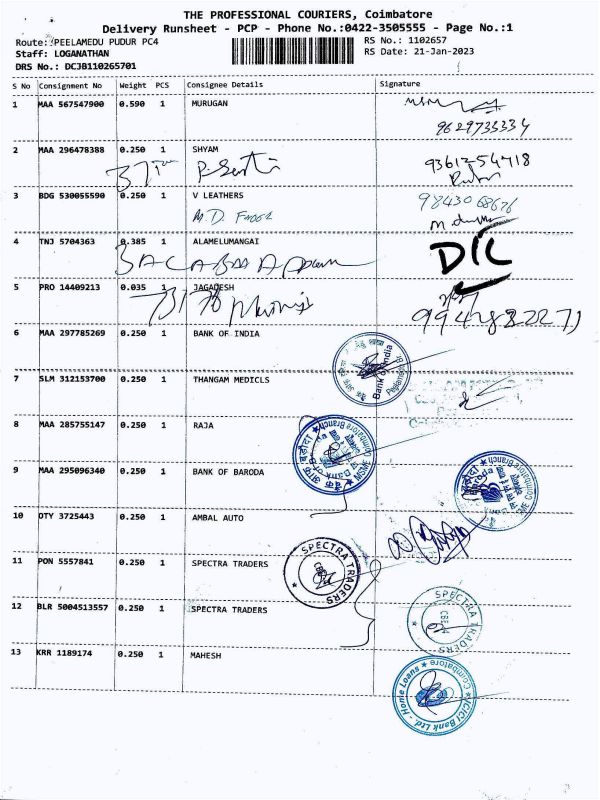 THE PROFESSIONAL COURIERS, Coimbatore
Delivery Runsheet - PCP - Phone No.:0422-3505555 - Page No.:1
Route: PEELAMEDU PUDUR PC4
RS No.: 1102657
Staff: LOGANATHAN
RS Date: 21-Jan-2023
DRS No.: DCJB110265701
S No Consignment No Weight PCS Consignee Details Signature
1 MAA 567547900 0.590 1 MURUGAN
9629733334
2 MAA 296478388 0.250 1 SHYAM
9361254718
3 BDG 530055590 0.250 1 V LEATHERS
M.D.
4 TNJ 5704363 0.385 1 ALAMELUMANGAI
5 PRO 14409213 0.035 1 JAGADESH
6 MAA 297785269 0.250 1 BANK OF INDIA
Bank of India
7 SLM 312153700 0.250 1 THANGAM MEDICLS
8 MAA 285755147 0.250 1 RAJA
Coimbatore Branch
9 MAA 295096340 0.250 1 BANK OF BARODA
Coimbatore Branch
10 OTY 3725443 0.250 1 AMBAL AUTO
11 PON 5557841 0.250 1 SPECTRA TRADERS
SPECTRA TRADERS
12 BLR 5004513557 0.250 1 SPECTRA TRADERS
SPECTRA TRADERS
13 KRR 1189174 0.250 1 MAHESH
ICICI Bank Ltd. - Home Loans
Coimbatore